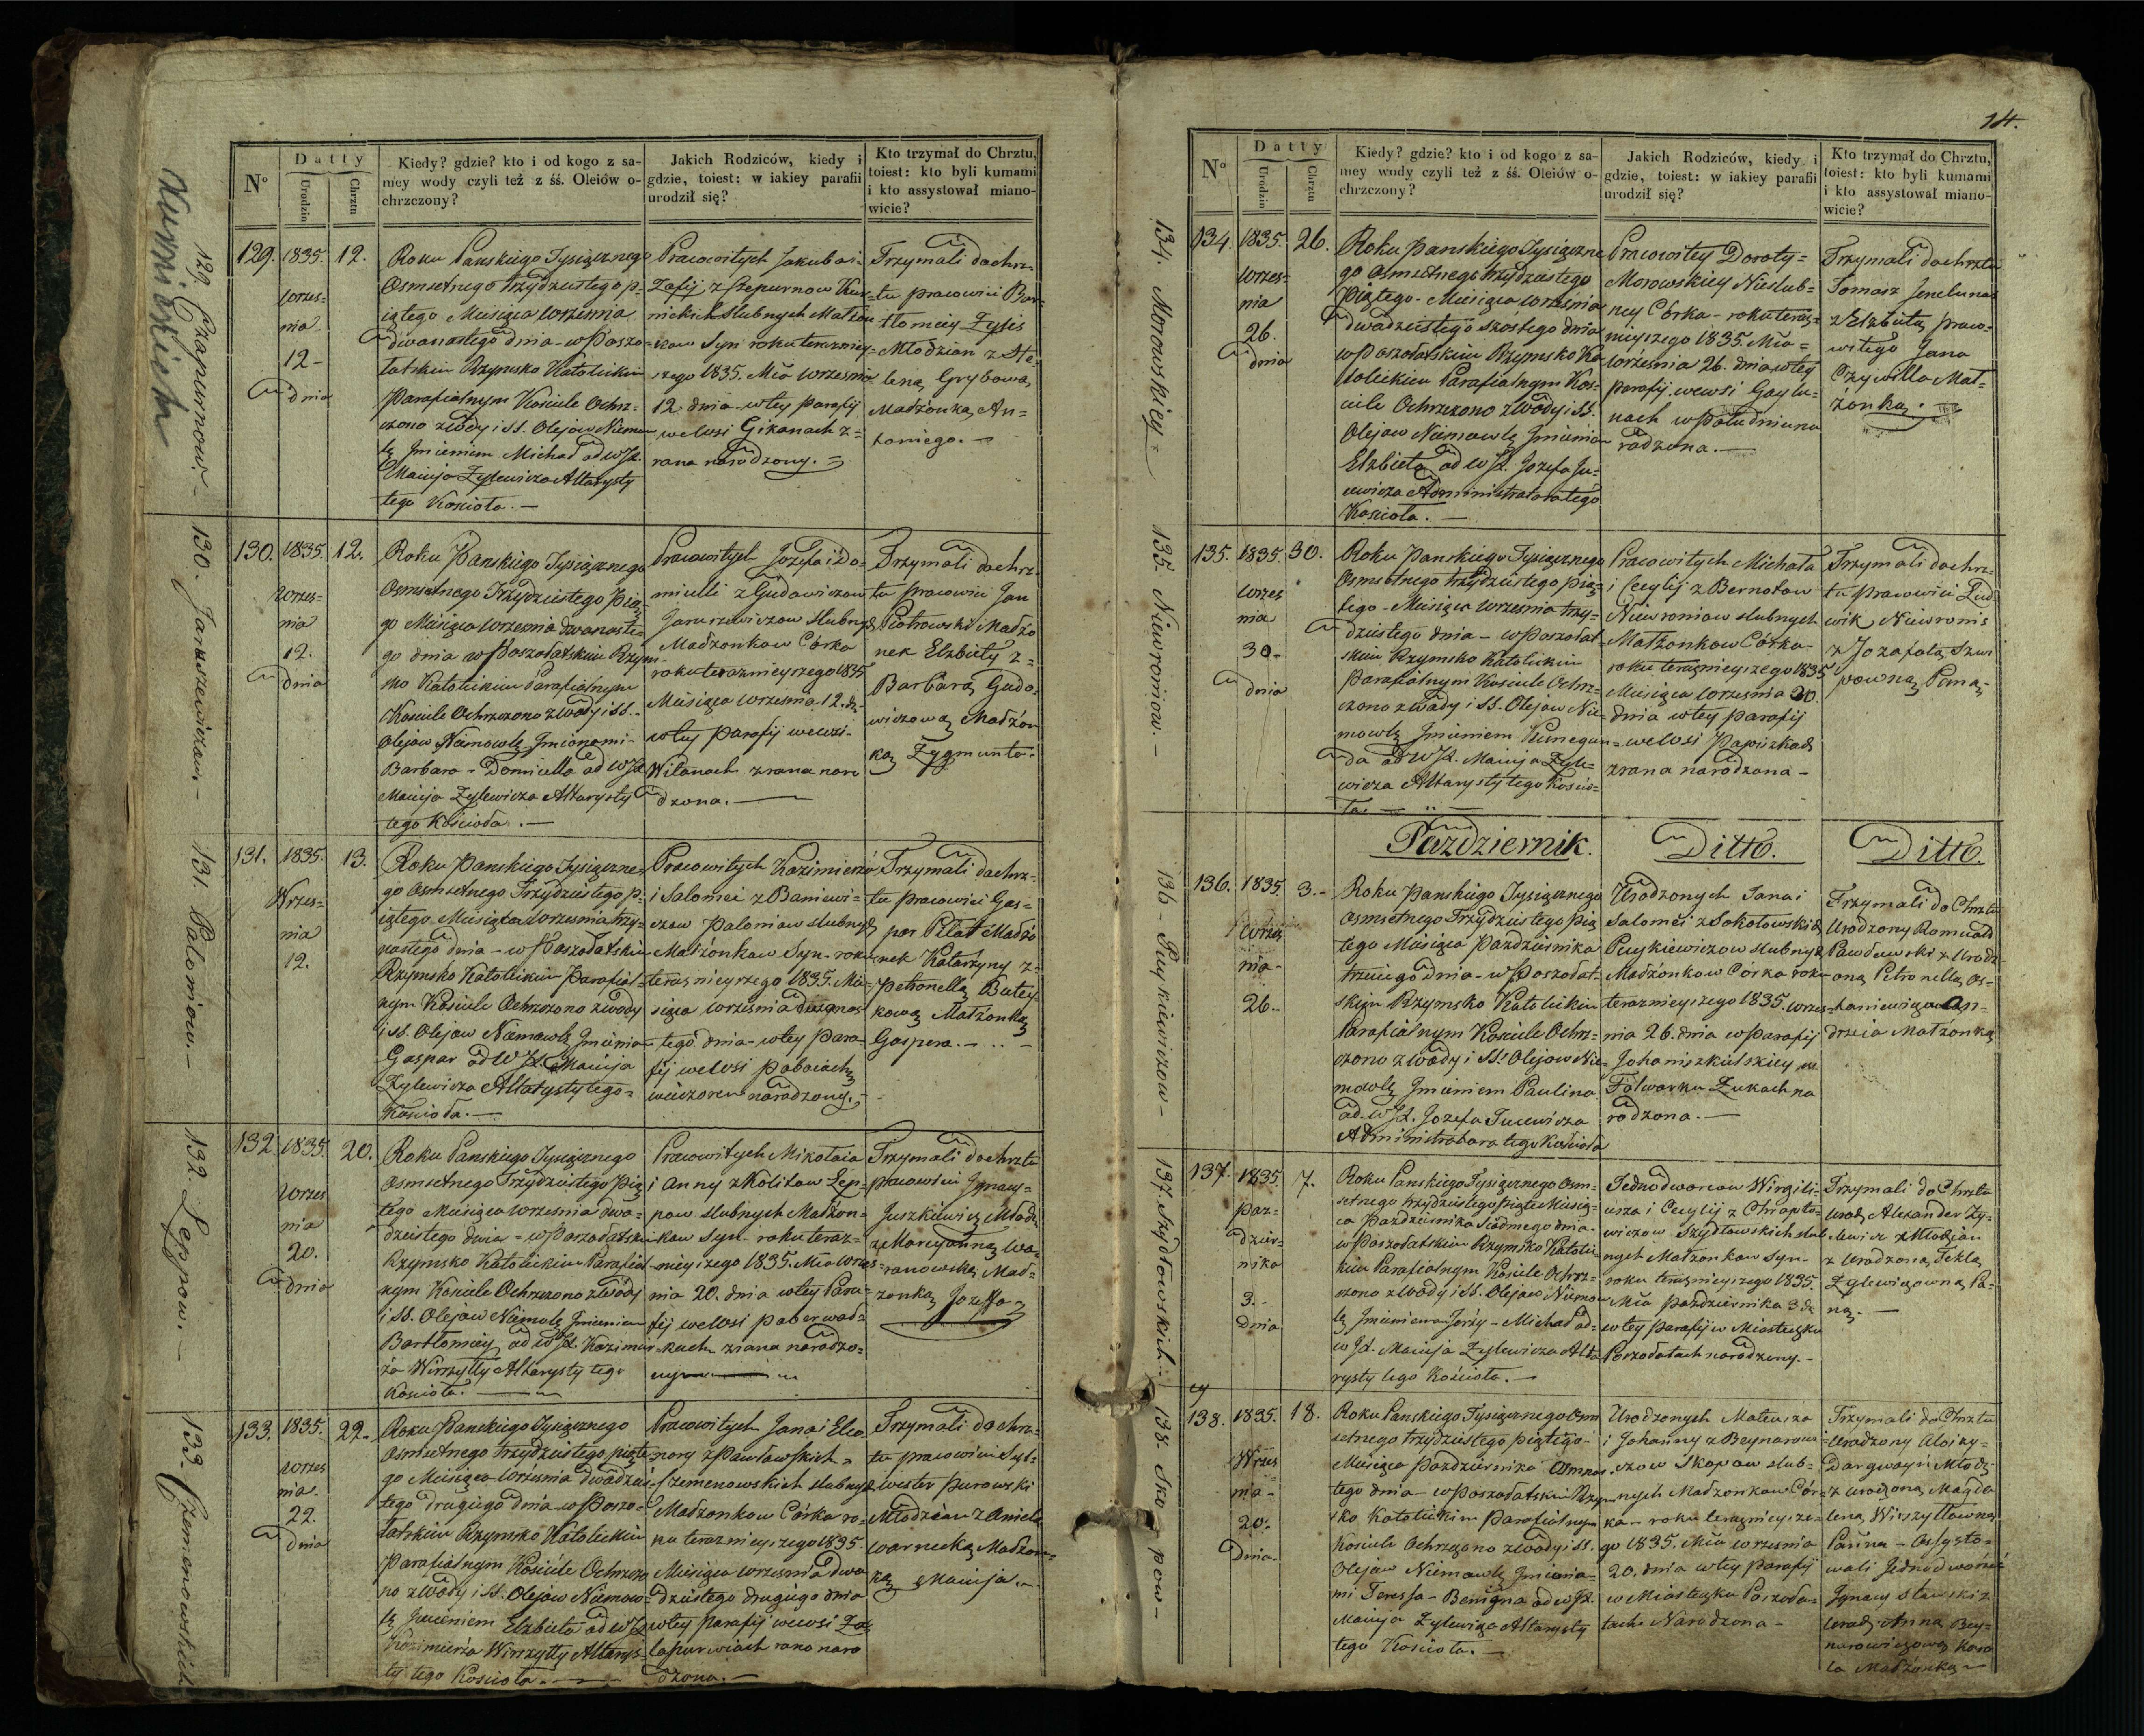 14.
Datty
Nº
Urodzin
Chrztu
Kiedy? gdzie? kto i od kogo z sa-
mey wody czyli też z śś. Oleiów o-
chrzczony?
Jakich Rodziców, kiedy i
gdzie, toiest: w iakiey parafii
urodził się?
Kto trzymał do Chrztu,
toiest: kto byli kumami
i kto assystował miano-
wicie?
129.
1835.
Wrzes-
nia
12-
dnia
12.
Roku Panskiego Tysiącznego
Osmsetnego trzydziestego p-
iątego Miesiąca Września
dwunastego dnia - w Poszo-
łatskim Rzymsko Katolickim
Parafialnym Kościele Ochrz-
czono z Wody i SS. Olejow Niemow
lę Jmieniem Michał od WJX.
Macieja Zylewicza Altarysty
tego Kościoła. —
Pracowitych Jakuba i
Zofij z Czepurnow
slubnych Małzon
kow Syn roku terazniey-
szego 1835. Mca Wrzesnia
12. dnia w tey Parafij
we Wsi Gikanach z-
rana narodzony.
Trzymali do chrz-
tu pracowici Bar-
tłomiey Zylis
Młodzian z He-
leną Grybową
Madżonką An-
toniego. —
130. Januszewiczow. —
130.
1835.
Wrzes-
nia
12.
dnia
12.
Roku Panskiego Tysiącznego
Osmsetnego Trzydziestego Pią
go Miesiąca Wrzesnia dwunaste-
go dnia w Poszołatskim Rzym-
sko Katolickim Parafialnym
Kościele Ochrzczono z Wody i SS.
Olejow Niemowlę Jmionami
Barbara - Domicella od WJX
Macieja Zylewicza Altarysty
tego Kościoła. —
Pracowitych Jozefa i Do-
micelli z Gudowiczow
Januszewiczow slubnych
Madzonkow Córka
roku teraznieyszego 1835
Miesiąca Wrzesnia 12. dn.
w tey Parafij we Wsi
Witanach zrana naro
dzona. —
Trzymali do chrz-
tu pracowici Jan
Piotrowski Madżo
nek Elzbiety z-
Barbarą Gudo-
wiczową Madżon
ką Zygmunta.
131. Paloniow. —
131.
1835.
Wrzes-
nia
12.
13.
Roku Panskiego Tysiączne-
go Osmsetnego Trzydziestego p-
iątego Miesiąca Wrzesnia trzy-
nastego dnia - w Poszołatskim
Rzymsko Katolickim Parafial-
nym Kościele Ochrzczono z Wody
i SS. Olejow Niemowlę Jmieniem
Gaspar od WJX. Macieja
Zylewicza Altarysty tego
Kościoła. —
Pracowitych Kazimierza
i Salomei z Baniewi-
czow Paloniow slubnych
Małżonkow Syn - roku
teraznieyszego 1835. Mie-
siąca Wrzesnia dwunas
tego dnia - w tey Para-
fij we Wsi Paboiach
wieczorem narodzony. -
Trzymali do chrz-
tu pracowici Gas-
par Pilat Madżo
nek Katarzyny z-
Petronellą Butey-
kową Małżonką
Gaspera. —
132. Leppow. —
132.
1835.
Wrzes
nia
20.
dnia
20.
Roku Panskiego Tysiącznego
Osmsetnego Trzydziestego Pią
tego Miesiąca Wrzesnia dwu-
dziestego dnia - w Poszołatskim
Rzymsko Katolickim Parafial
nym Kościele Ochrzczono z Wody
i SS. Olejow Niemowlę Jmieniem
Bartłomiey od WJX. Kazimie-
rza Wirszyłły Altarysty tego
Kościoła. —
Pracowitych Mikołaia
i Anny z Kolitow Lep-
pow slubnych Małżon-
kow Syn - roku teraz-
nieyszego 1835. Mca Wrzes-
nia 20. dnia w tey Para-
fij we Wsi Paberwod-
kach zrana narodzo-
ny
Trzymali do chrztu
pracowici Jgnacy
Juszkiewicz Młodz.
z Maryanną Wo-
ranowską Mał-
żonką Jozeffa
133. Czemenowskich
133.
1835.
Wrzes
nia.
22.
dnia
22.
Roku Panskiego Tysiącznego
Osmsetnego trzydziestego piąte
go Miesiąca Wrzesnia dwudzies-
tego drugiego dnia w Poszo-
łatskim Rzymsko Katolickim
Parafialnym Kościele Ochrzczo
no z Wody i SS. Olejow Niemow-
lę Jmieniem Elzbieta od WJX
Kazimierza Wirszyłły Altarys
ty tego Kościoła. —
Pracowitych Jana i Eleo
nory z Pawłowskich
Czemenowskich slubnych
Madzonkow Córka ro-
ku teraznieyszego 1835.
Miesiąca Wrzesnia dwu
dziestego drugiego dnia
w tey Parafij we Wsi
rano naro
dzona. —
Trzymali do chrz-
tu pracowici Syl-
wester Purowski
Młodzian z Anielą
Warnecką Madżon-
ką Macieja
Datty
Nº
Urodzin
Chrztu
Kiedy? gdzie? kto i od kogo z sa-
mey wody czyli też z śś. Oleiów o-
chrzczony?
Jakich Rodziców, kiedy i
gdzie, toiest: w iakiey parafii
urodził się?
Kto trzymał do Chrztu,
toiest: kto byli kumami
i kto assystował miano-
wicie?
134. Morowskiey
134.
1835.
Wrzes-
nia
26.
dnia
26.
Roku Panskiego Tysiączne
go Osmsetnego trzydziestego
Piątego - Miesiąca Wrzesnia
dwudziestego szóstego dnia
w Poszołatskim Rzymsko Ka
tolickim Parafialnym Koś-
ciele Ochrzczono z Wody i SS.
Olejow Niemowlę Jmieniem
Elzbieta od WJX. Jozefa Ju-
cewicza Administratora tego
Kościoła. —
Pracowitey Doroty
Morowskiey Nieslub-
ney Córka - roku teraz-
nieyszego 1835. Mca
Wrzesnia 26. dnia w tey
parafij we Wsi Gaylu-
nach w Południe na
rodzona. —
Trzymali do chrztu
Tomasz
z Elzbietą praco-
witego Jana
Czywilla Mał-
żonką.
135. Niewroniow. —
135.
1835.
Wrzes
nia
30.
dnia
30.
Roku Panskiego Tysiącznego
Osmsetnego trzydziestego pią-
tego - Miesiąca Wrzesnia trzy-
dziestego dnia - w Poszołat-
skim Rzymsko Katolickim
Parafialnym Kościele Ochrz-
czono z Wody i SS. Olejow Nie-
mowlę Jmieniem Kunegun-
da od WJX. Macieja Zyle-
wicza Altarysty tego Kościo-
ła. —
Pracowitych Michała
i Cecylij z Bernatow
Niewroniow slubnych
Małżonkow Córka
roku teraznieyszego 1835
Miesiąca Wrzesnia 30.
dnia w tey Parafij
we Wsi Papiszkach
zrana narodzona -
Trzymali do chrz-
tu pracowici Lud
wik Niewronis
z Jozafatą Szwe
powną Panną
Październik.
Ditto.
Ditto.
136 - Puykiewiczow -
136.
1835
Wrzes
nia -
26.
3.-
Roku Panskiego Tysiącznego
Osmsetnego Trzydziestego Pią
tego Miesiąca Października
trzeciego dnia - w Poszołat-
skim Rzymsko Katolickim
Parafialnym Kościele Ochrz-
czono z Wody i SS. Olejow Nie-
mowlę Jmieniem Paulina
od WJX. Jozefa Jucewicza
Administratora tego Kościoła
Urodzonych Jana i
Salomei z Sokołowskich
Puykiewiczow slubnych
Madżonkow Córka roku
teraznieyszego 1835. Wrzes-
nia 26. dnia w Parafij
Johaniszkielskiey w
Folwarku Zukach na
rodzona. —
Trzymali do Chrztu
Urodzony Romuald
Pawłowski z Urodz
oną Petronellą Os-
taniewiczową An-
drzeia Małżonką
137. Szydłowskich.
137.
1835
Paz-
dzier-
nika
3.-
dnia
7.
Roku Panskiego Tysiącznego Osm-
setnego trzydziestego piąte Miesią-
ca Października Siódmego dnia -
w Poszołatskim Rzymsko Katolic
kim Parafialnym Kościele Ochrz-
czono z Wody i SS. Olejow Niemow
lę Jmieniem Jerzy - Michał od -
WJX. Macieja Zylewicza Alta
rysty tego Kościoła. —
Jednodworcow Wirgili-
usza i Cecylij z Chrapto-
wiczow Szydłowskich slub
nych Małżonkow Syn -
roku teraznieyszego 1835.
Mca Października 3 dn.
w tey Parafij w Miasteczku
Poszołatach narodzony. -
Trzymali do Chrztu
Urodz. Alexander Zy-
lewicz Młodzian
z Urodzoną Teklą
Zylewiczowną Pa-
ną. —
138. Skop pow -
138.
1835.
Wrzes
nia -
20.-
dnia.
18.
Roku Panskiego Tysiącznego Osm
setnego trzydziestego piątego
Miesiąca Października Osmnas-
tego dnia - w Poszołatskim Rzym
sko Katolickim Parafialnym
Kościele Ochrzczono z Wody i SS.
Olejow Niemowlę Jmiona-
mi Teressa - Benigna od WJX.
Macieja Zylewicza Altarysty
tego Kościoła. —
Urodzonych Mateusza
i Johanny z Beynarowi-
czow Skopow slub-
nych Madżonkow Cór-
ka - roku teraznieysze-
go 1835. Mca Wrzesnia
20. dnia w tey Parafij
w Miasteczku Poszoła-
tach Narodzona -
Trzymali do Chrztu
Urodzony Aloizy
Dargwayn Młodz.
z Urodzoną Magda
leną Wirszyłłowną
Panna - Assysto-
wali Jednodworcow
Jgnacy Sławski z
Urodz. Anną Bey-
narowiczową Karo
la Małżonką —